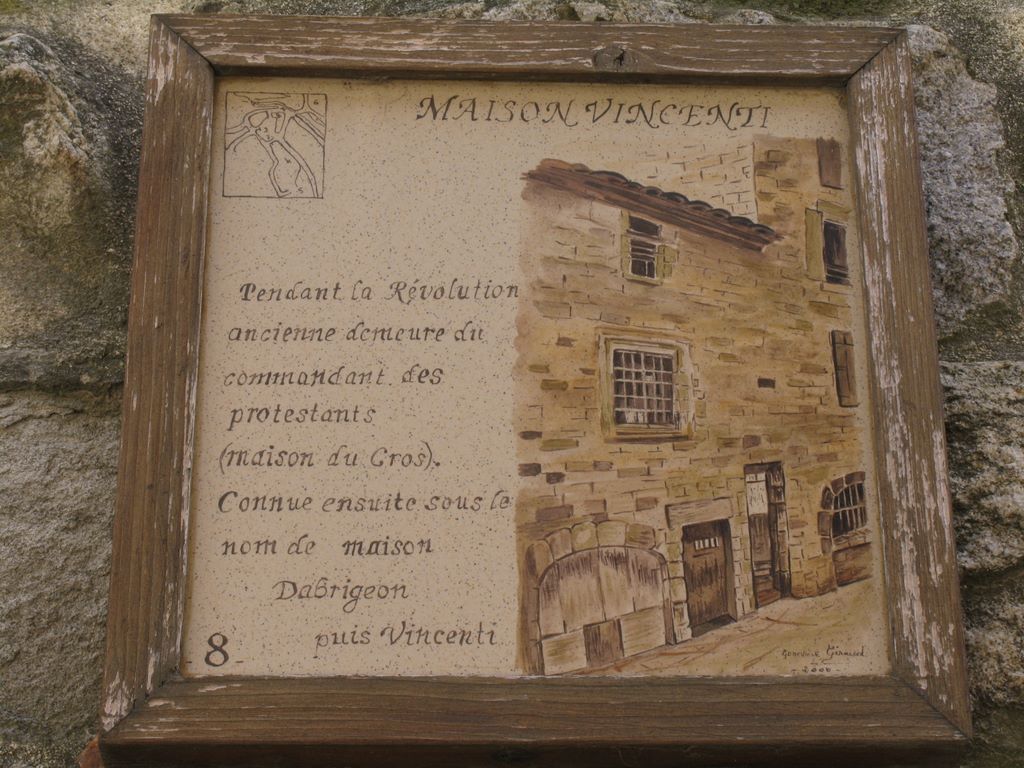 MAISON VINCENTI
Pendant la Révolution
ancienne demeure du
commandant des
protestants
(maison du Gros).
Connue ensuite sous le
nom de maison
Dabrigeon
puis Vincenti
8
Geneviève Giraud
2006